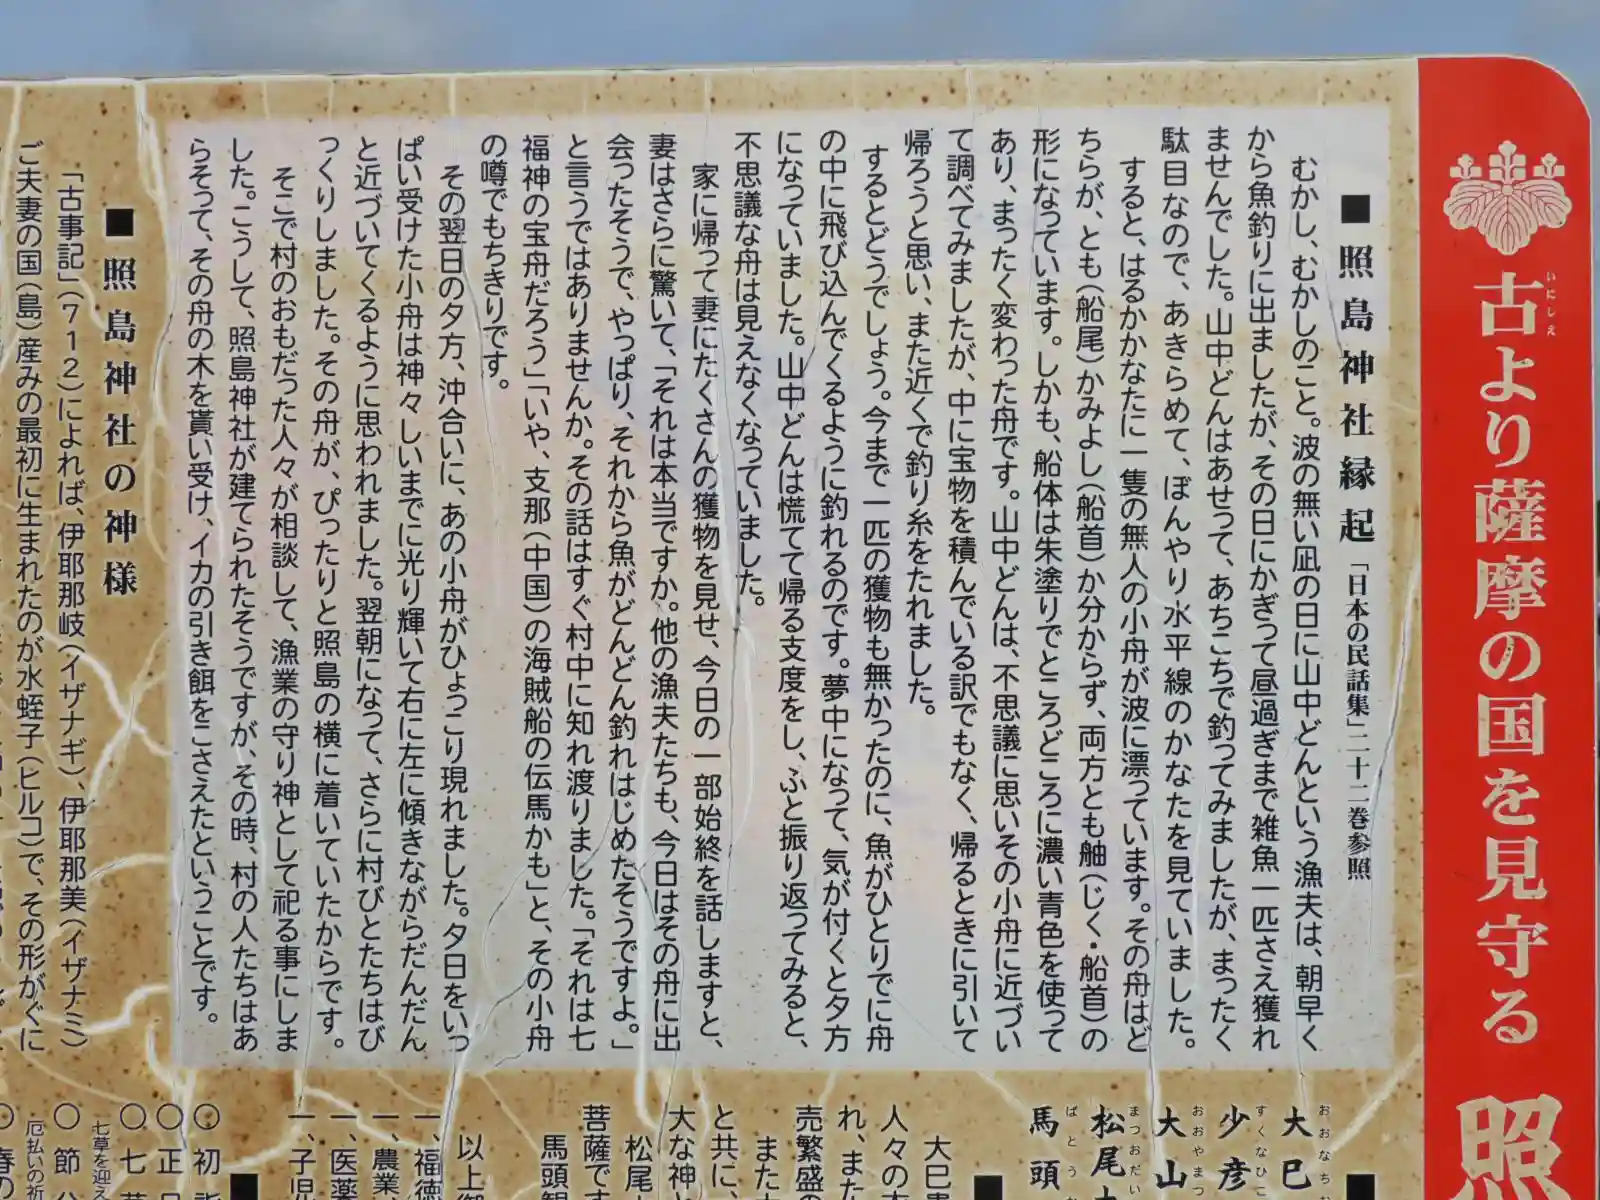 古より薩摩の国を見守る 照
いにしえ
■照島神社縁起「日本の民話集」二十二巻参照
むかし、むかしのこと。波の無い凪の日に山中どんという漁夫は、朝早く
から魚釣りに出ましたが、その日にかぎって昼過ぎまで雑魚一匹さえ獲れ
ませんでした。山中どんはあせって、あちこちで釣ってみましたが、まったく
駄目なので、あきらめて、ぼんやり水平線のかなたを見ていました。
すると、はるかかなたに一隻の無人の小舟が波に漂っています。その舟はど
ちらが、とも(船尾)かみよし(船首)か分からず、両方とも舳(じく・船首)の
形になっています。しかも、船体は朱塗りでところどころに濃い青色を使って
あり、まったく変わった舟です。山中どんは、不思議に思いその小舟に近づい
て調べてみましたが、中に宝物を積んでいる訳でもなく、帰るときに引いて
帰ろうと思い、また近くで釣り糸をたれました。
するとどうでしょう。今まで一匹の獲物も無かったのに、魚がひとりでに舟
の中に飛び込んでくるように釣れるのです。夢中になって、気が付くと夕方
になっていました。山中どんは慌てて帰る支度をし、ふと振り返ってみると、
不思議な舟は見えなくなっていました。
家に帰って妻にたくさんの獲物を見せ、今日の一部始終を話しますと、
妻はさらに驚いて、「それは本当ですか。他の漁夫たちも、今日はその舟に出
会ったそうで、やっぱり、それから魚がどんどん釣れはじめたそうですよ。」
と言うではありませんか。その話はすぐ村中に知れ渡りました。「それは七
福神の宝舟だろう」「いや、支那(中国)の海賊船の伝馬かも」と、その小舟
の噂でもちきりです。
その翌日の夕方、沖合いに、あの小舟がひょっこり現れました。夕日をいっ
ぱい受けた小舟は神々しいまでに光り輝いて右に左に傾きながらだんだん
と近づいてくるように思われました。翌朝になって、さらに村びとたちはび
っくりしました。その舟が、ぴったりと照島の横に着いていたからです。
そこで村のおもだった人々が相談して、漁業の守り神として祀る事にしま
した。こうして、照島神社が建てられたそうですが、その時、村の人たちはあ
らそって、その舟の木を貰い受け、イカの引き餌をこさえたということです。
■照島神社の神様
「古事記」(712)によれば、伊耶那岐(イザナギ)、伊耶那美(イザナミ)
ご夫妻の国(島)産みの最初に生まれたのが水蛭子(ヒルコ)で、その形がぐに
大巳
おおなち
少彦
すくなひこ
大山
おおやまつ
松尾大
まつおだい
馬頭
ばとう
大巳貴
人々の
れ、また
売繁盛の
また大
と共に、
大な神と
松尾
菩薩です
馬頭観
以上御
一、福徳
一、農業、
一、医薬
一、子児
〇初詣
〇正月
〇七草
七草を迎え
〇節分
厄払いの祈
〇春の